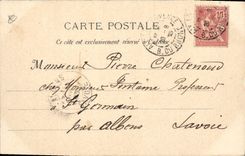 CARTE POSTALE
Ce côté est exclusivement réservé à l'adresse
Monsieur Pierre Chatenoud
chez Monsieur Fontaine Professeur
St Germain
par Albens Savoie